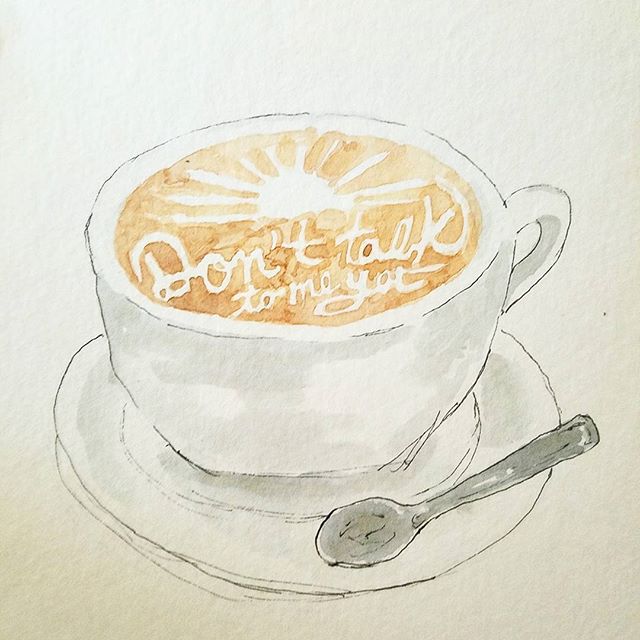 Don't talk
to me yet